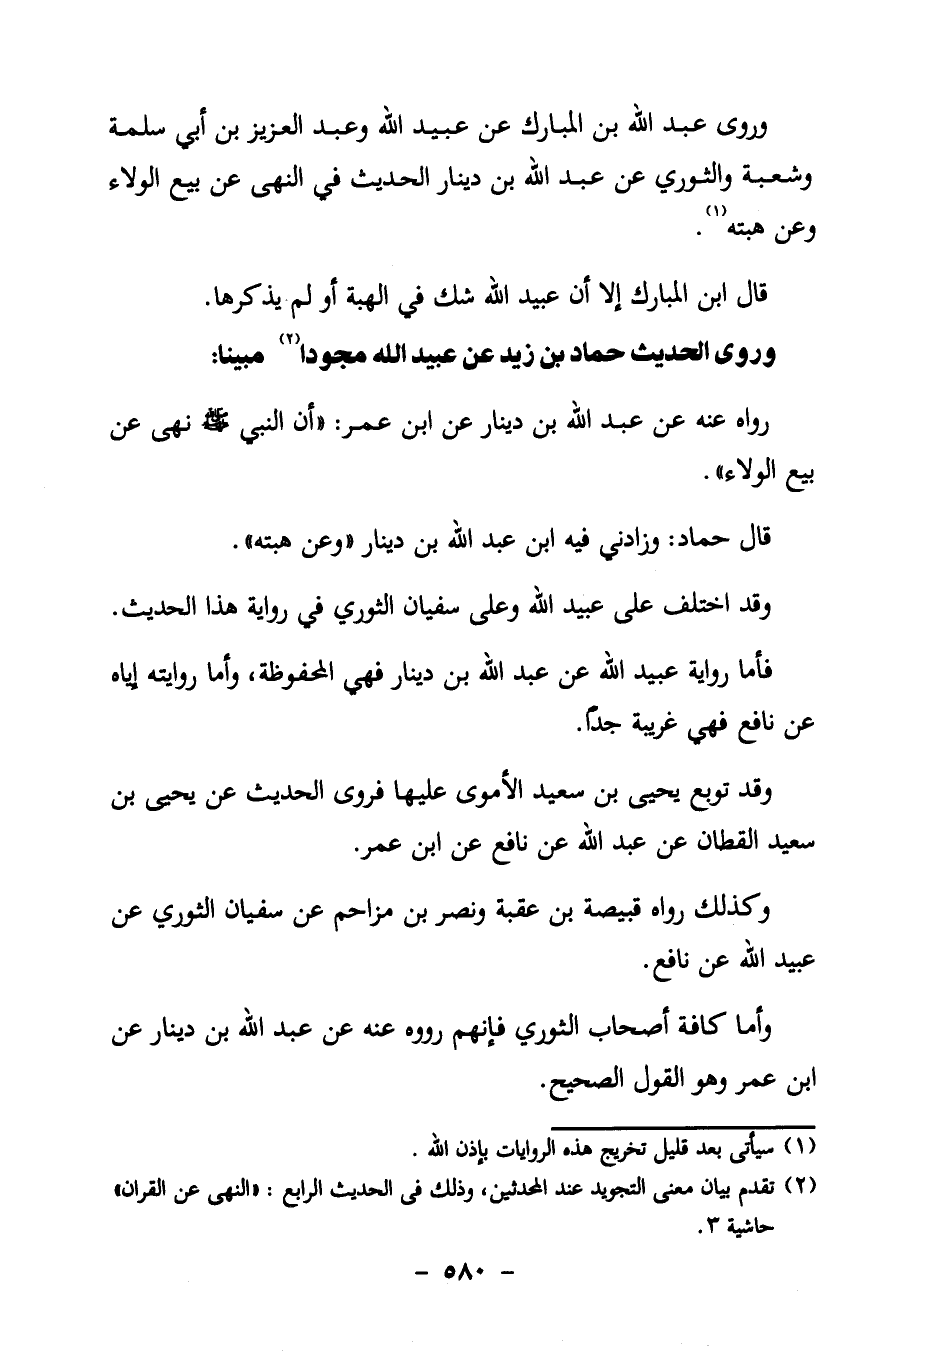 وروى عبد الله بن المبارك عن عبيد الله وعبد العزيز بن أبي سلمة
وشعبة والثوري عن عبد الله بن دينار الحديث في النهى عن بيع الولاء
وعن هبته(١).
قال ابن المبارك إلا أن عبيد الله شك في الهبة أو لم يذكرها.
وروى الحديث حماد بن زيد عن عبيد الله مجودا(٢) مبينا:
رواه عنه عن عبد الله بن دينار عن ابن عمر: «أن النبي ﷺ نهى عن
بيع الولاء».
قال حماد: وزادني فيه ابن عبد الله بن دينار «وعن هبته».
وقد اختلف على عبيد الله وعلى سفيان الثوري في رواية هذا الحديث.
فأما رواية عبيد الله عن عبد الله بن دينار فهي المحفوظة، وأما روايته إياه
عن نافع فهي غريبة جداً.
وقد توبع يحيى بن سعيد الأموى عليها فروى الحديث عن يحيى بن
سعيد القطان عن عبد الله عن نافع عن ابن عمر.
وكذلك رواه قبيصة بن عقبة ونصر بن مزاحم عن سفيان الثوري عن
عبيد الله عن نافع.
وأما كافة أصحاب الثوري فإنهم رووه عنه عن عبد الله بن دينار عن
ابن عمر وهو القول الصحيح.
(١) سيأتى بعد قليل تخريج هذه الروايات بإذن الله .
(٢) تقدم بيان معنى التجويد عند المحدثين، وذلك فى الحديث الرابع : «النهى عن القران»
حاشية ٣.
- ٥٨٠ -